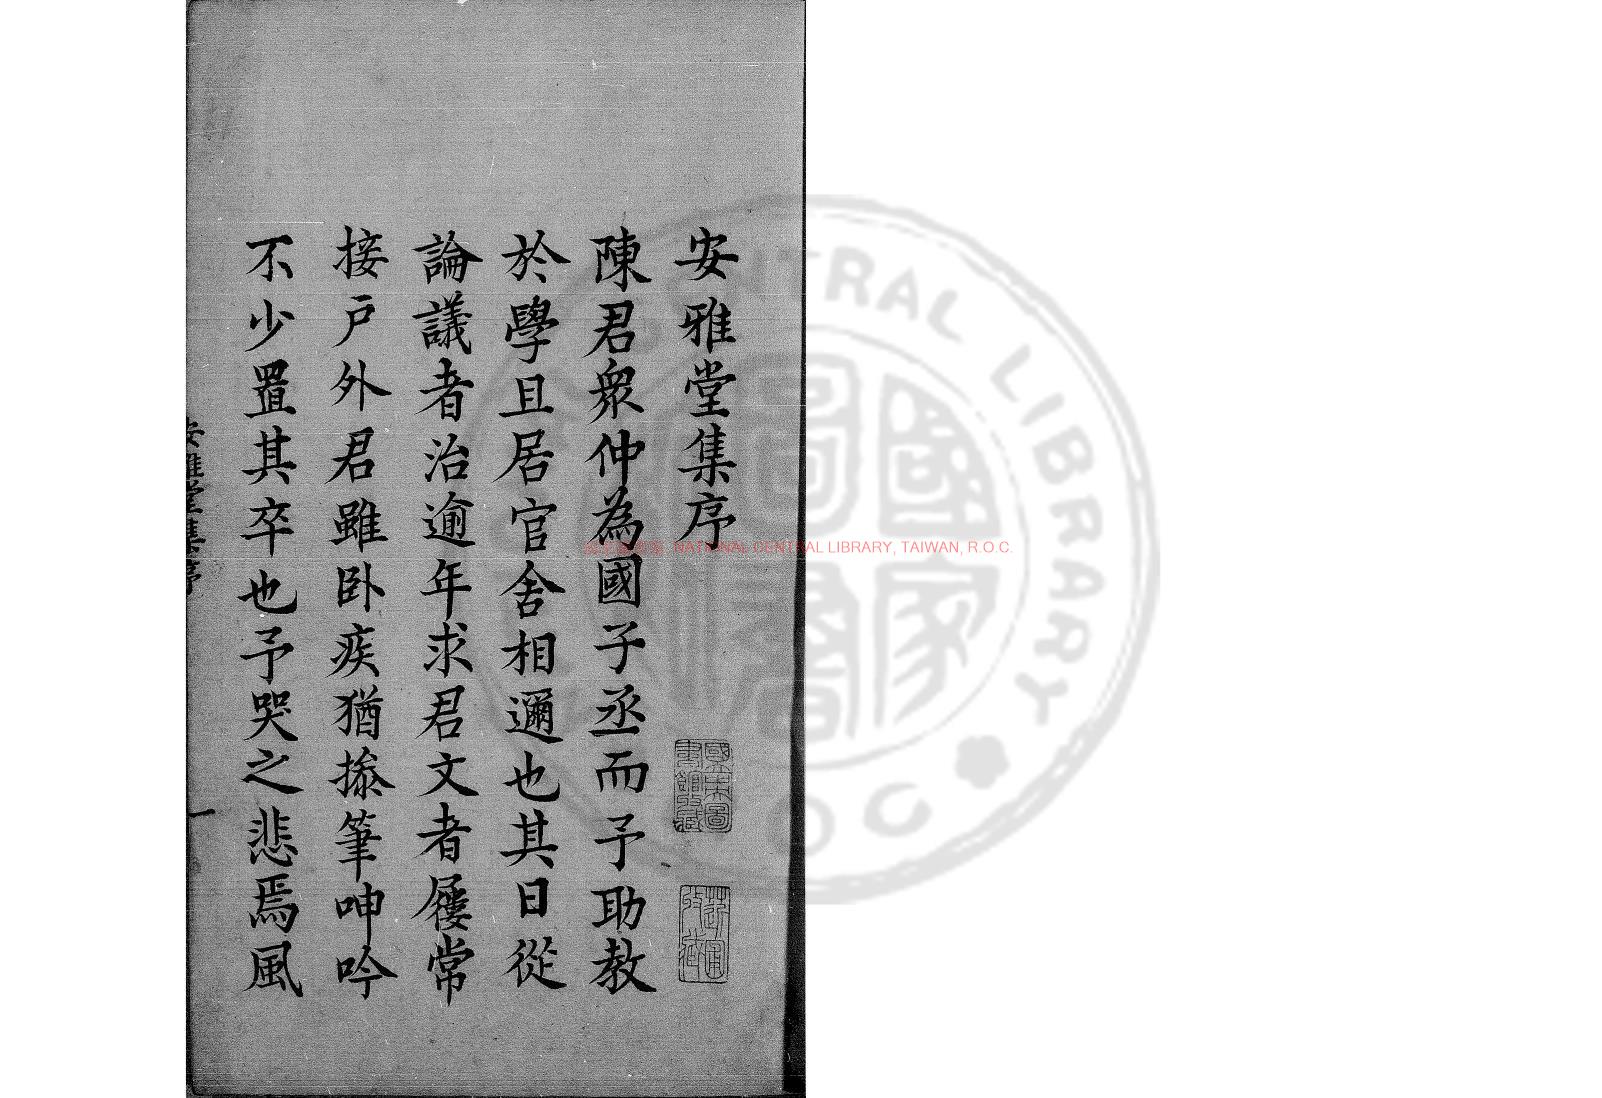 安雅堂集序
陳君衆仲為國子丞而予助教
於學且居官舍相邇也其日從
論議者治逾年求君文者屨常
接戶外君雖卧疾猶搽筆呻吟
不少置其卒也予哭之悲焉風
安雅堂集序
一
國立中央圖書館收藏
NATIONAL CENTRAL LIBRARY, TAIWAN, R.O.C.
CENTRAL LIBRARY
國家圖書